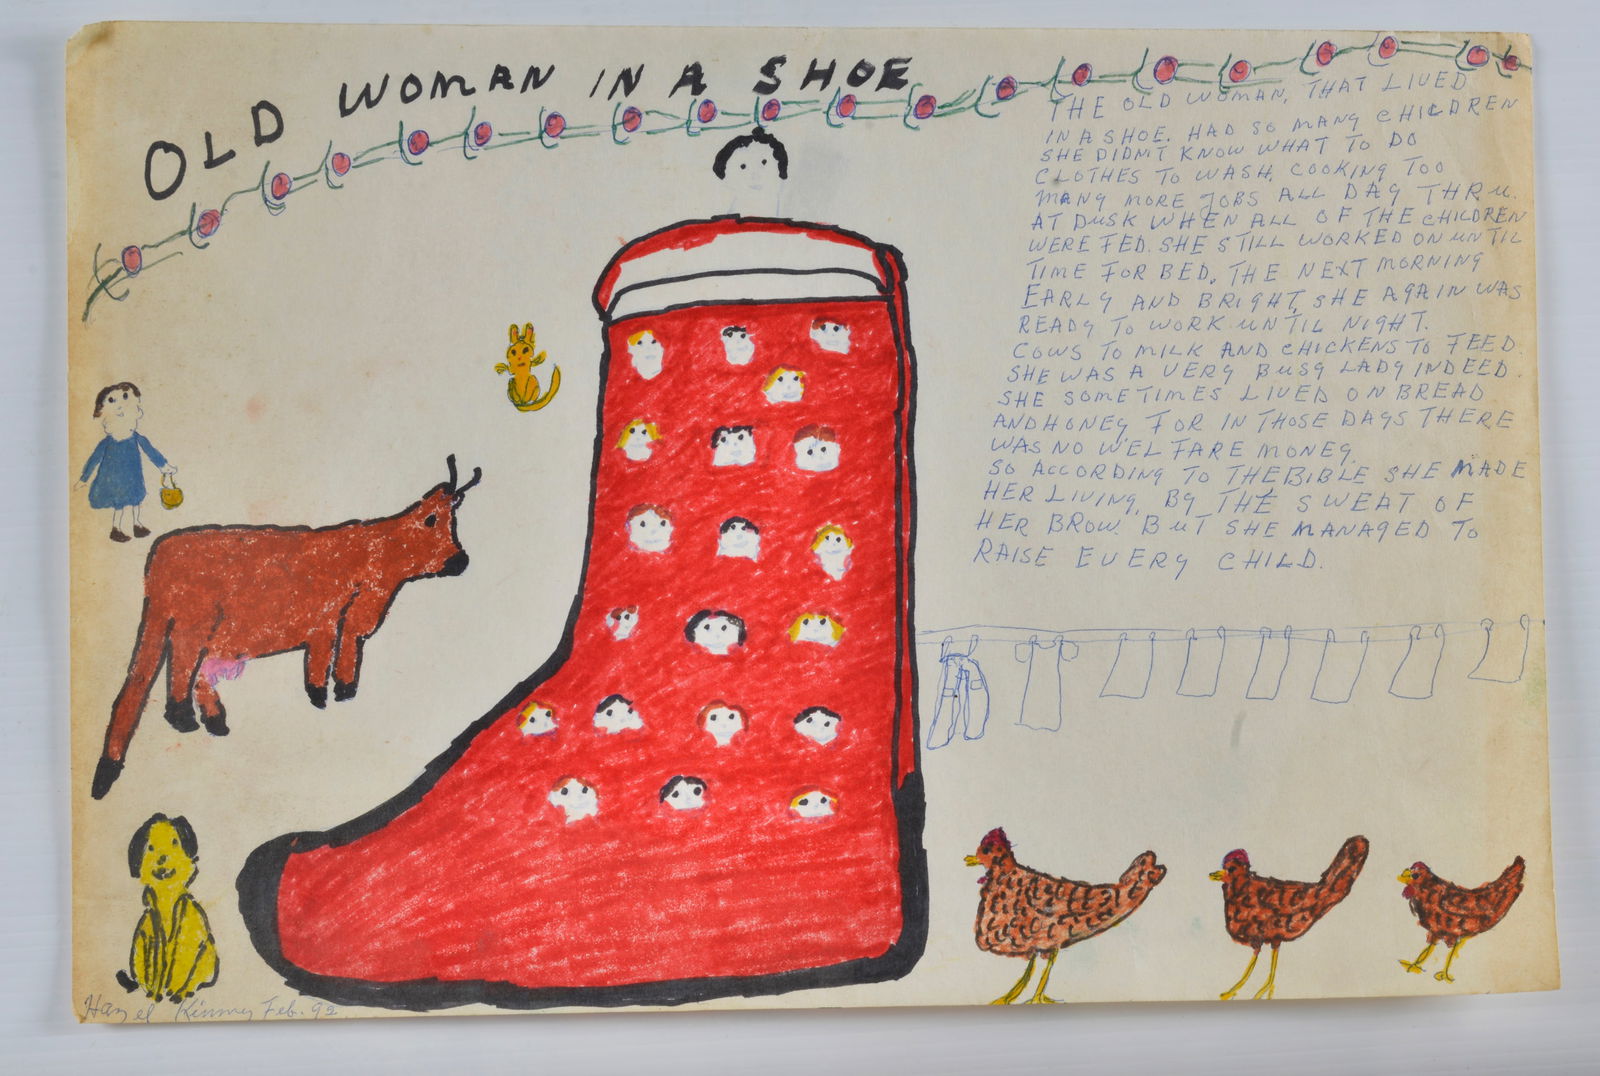 OLD WOMAN IN A SHOE
THE OLD WOMAN, THAT LIVED
IN A SHOE. HAD SO MANY CHILDREN
SHE DIDNT KNOW WHAT TO DO
CLOTHES TO WASH, COOKING TOO
MANY MORE JOBS ALL DAY THRU.
AT DUSK WHEN ALL OF THE CHILDREN
WERE FED. SHE STILL WORKED ON UNTIL
TIME FOR BED. THE NEXT MORNING
EARLY AND BRIGHT, SHE AGAIN WAS
READY TO WORK UNTIL NIGHT.
COWS TO MILK AND CHICKENS TO FEED
SHE WAS A VERY BUSY LADY INDEED.
SHE SOMETIMES LIVED ON BREAD
AND HONEY FOR IN THOSE DAYS THERE
WAS NO WELFARE MONEY.
SO ACCORDING TO THE BIBLE SHE MADE
HER LIVING, BY THE SWEAT OF
HER BROW. BUT SHE MANAGED TO
RAISE EVERY CHILD.
Hazel Kinney Feb. 92